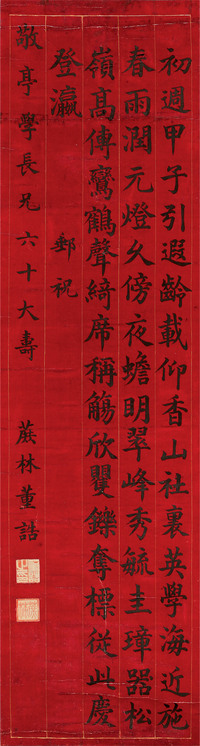 初週甲子引遐齡載仰香山社裏英學海近施
春雨潤元燈久傍夜蟾明翠峰秀毓圭璋器松
嶺高傳鸞鶴聲綺席稱觴欣矍鑠奪標從此慶
登瀛
郵祝
敬亭學長兄六十大壽
蔗林董誥